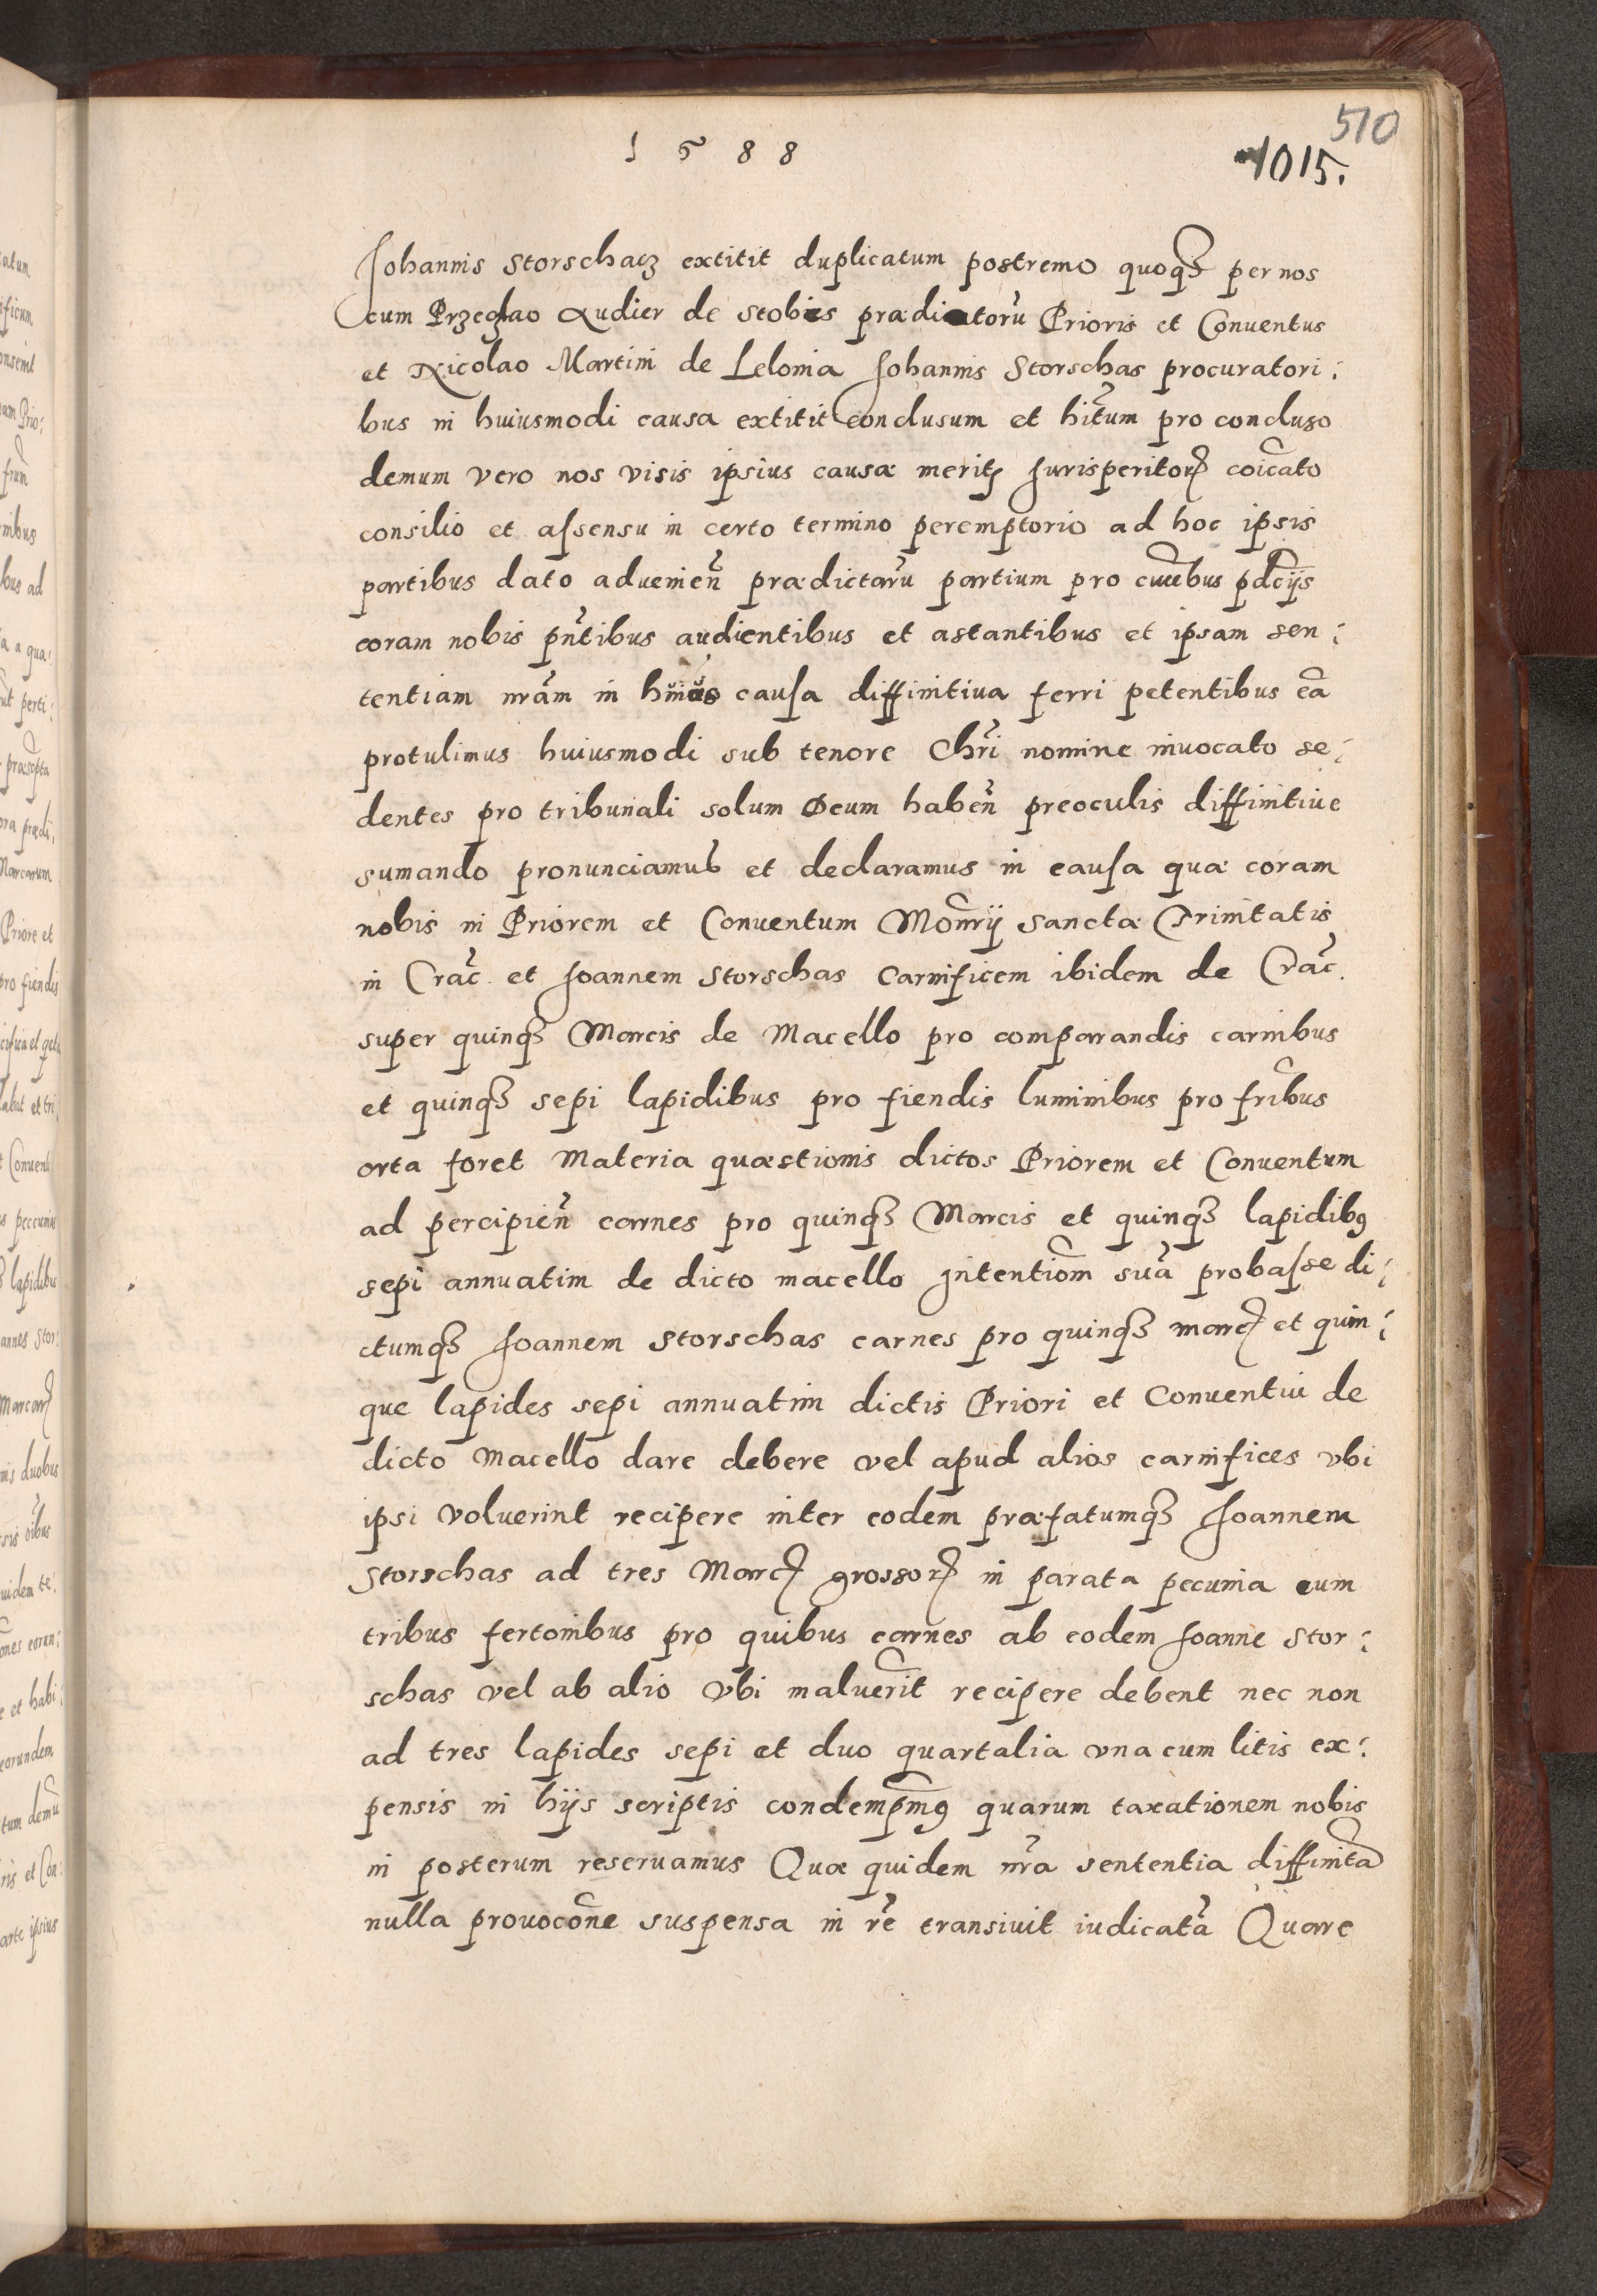 510
1588
1015.
Johannis Storschacz extitit duplicatum postremo quoqȝ per nos
cum Przeczlao Andier de Stobies prædicatorũ Prioris et Conuentus
et Nicolao Martini de Lelonia Johannis Storschas procuratori:
bus in huiusmodi causa extitit conclusum et hit̃um pro concluso
demum vero nos visis ipsius causæ meritȷ Jurisperitorꝝ coĩcato
consilio et assensu in certo termino peremptorio ad hoc ipsis
partibus dato aduenien̄ prædictarũ partium pro cuubus pdc̃ijs
coram nobis pñtibus audientibus et astantibus et ipsam sen:
tentiam nrãm in causa diffinitiua ferri petentibus eã
protulimus huiusmodi sub tenore Chri̇̃ nomine inuocato se:
dentes pro tribunali solum Deum haben̄ preoculis diffinitiue
sumando pronunciamus et declaramus in causa quæ coram
nobis in Priorem et Conuentum Monrij̃ Sanctæ Trinitatis
in Crac̃. et Joannem Storschas Carnificem ibidem de Crac̃.
super quinqȝ Marcis de Macello pro comparandis carnibus
et quinqȝ sepi lapidibus pro fiendis luminibus pro frĩbus
orta foret Materia quæstionis dictos Priorem et Conuentum
ad percipien̄ carnes pro quinqȝ Marcis et quinqȝ lapidibꝰ
sepi annuatim de dicto macello Jntentiõm suã probasse di:
ctumqȝ Joannem Storschas carnes pro quinqȝ marcȷ et quin:
que lapides sepi annuatim dictis Priori et Conuentui de
dicto Macello dare debere vel apud alios carnifices vbi
ipsi voluerint recipere inter eodem præfatumqȝ Joannem
Storschas ad tres Marcȷ grossorꝝ in parata pecunia cum
tribus fertonibus pro quibus carnes ab eodem Joanne Stor:
schas vel ab alio vbi maluer̃it recipere debent nec non
ad tres lapides sepi et duo quartalia vna cum litis ex:
pensis in hijs scriptis condempm̃ꝰ quarum taxationem nobis
in posterum reseruamus Quæ quidem nrã sententia diffinitã
nulla prouocõne suspensa in rẽ transiuit iudicatã Quare